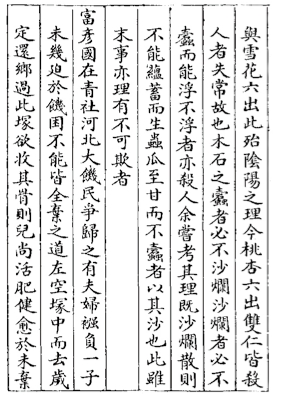 與雪花六出此殆陰陽之理今桃杏六出雙仁皆殺
人者失常故也木石之蠹者必不沙爛沙爛者必不
蠹而能浮不浮者亦殺人余嘗考其理既沙爛散則
不能蘊蓄而生蟲瓜至甘而不蠹者以其沙也此雖
末事亦理有不可欺者
富彥國在青社河北大饑民爭歸之有夫婦襁負一子
未幾迫於饑困不能皆全棄之道左空塚中而去歲
定還鄉過此塚欲收其骨則兒尚活肥健愈於未棄